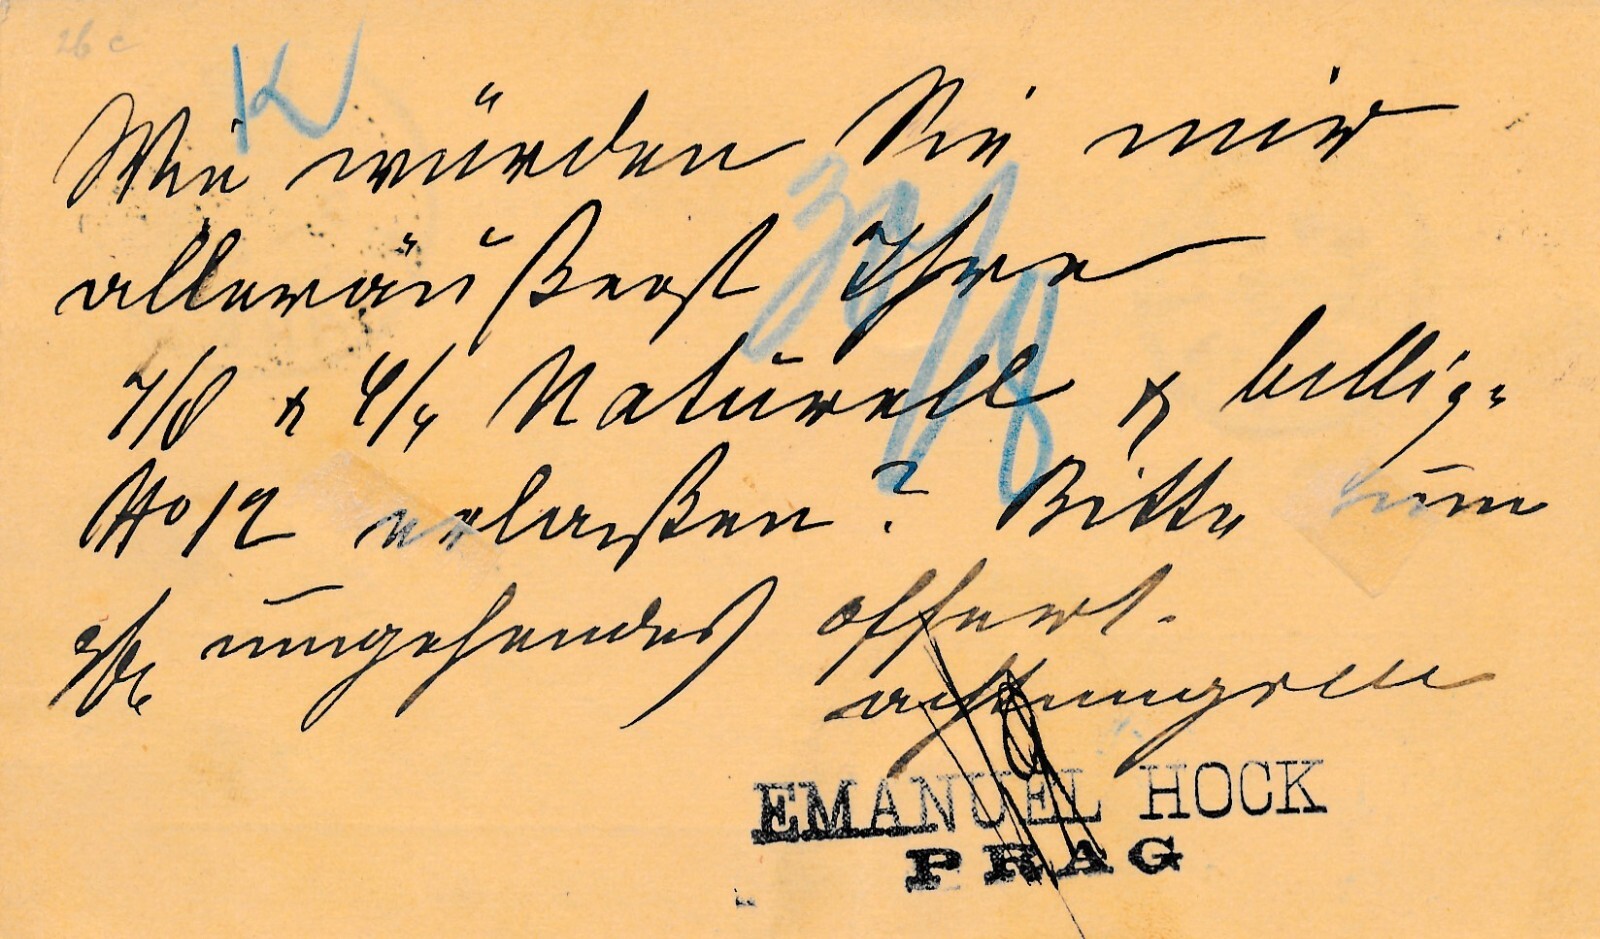 26 c
K
Wie würden Sie mir
alleräußerst Ihre
7/8 & 4/4 Naturell & billig-
Holz erlaßen? Bitte um
umgehendes Offert.
achtungsvoll
EMANUEL HOCK
PRAG